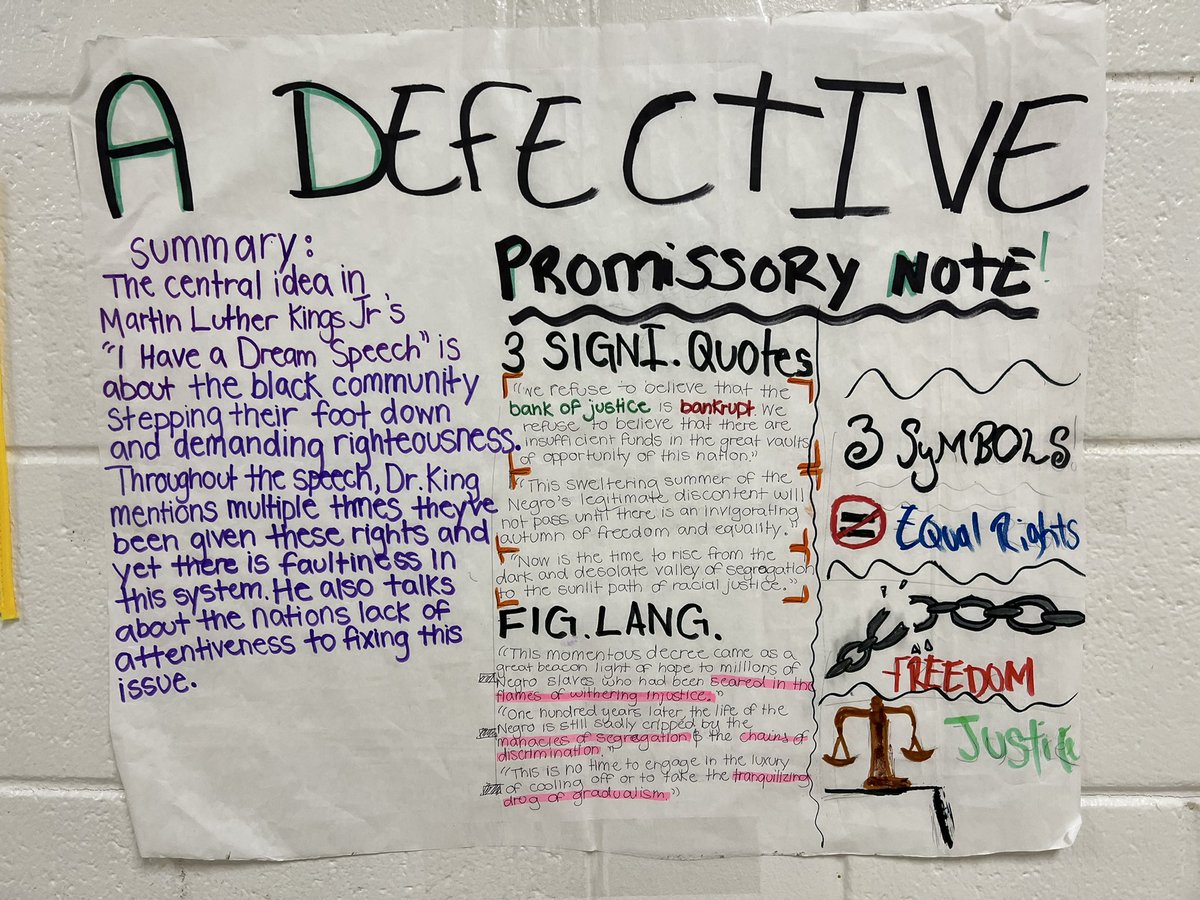 A DEfECTIVE
PROMISSORY NOTE!
Summary:
The central idea in
Martin Luther Kings Jr's
"I Have a Dream Speech" is
about the black community
stepping their foot down
and demanding righteousness.
Throughout the speech, Dr. King
mentions multiple times they've
been given these rights and
yet there is faultiness in
this system. He also talks
about the nations lack of
attentiveness to fixing this
issue.
3 SIGNI. Quotes
"We refuse to believe that the
bank of justice is bankrupt. We
refuse to believe that there are
insufficient funds in the great vaults
of opportunity of this nation."
"This sweltering summer of the
Negro's legitimate discontent will
not pass until there is an invigorating
autumn of freedom and equality."
"Now is the time to rise from the
dark and desolate valley of segregation
to the sunlit path of racial justice."
FIG. LANG.
"This momentous decree came as a
great beacon light of hope to millions of
Negro slaves who had been seared in the
flames of withering injustice."
"One hundred years later, the life of the
Negro is still sadly crippled by the
manacles of segregation & the chains of
discrimination."
"This is no time to engage in the luxury
of cooling off or to take the tranquilizing
drug of gradualism."
3 SyMBOLS
Equal Rights
FREEDOM
Justice